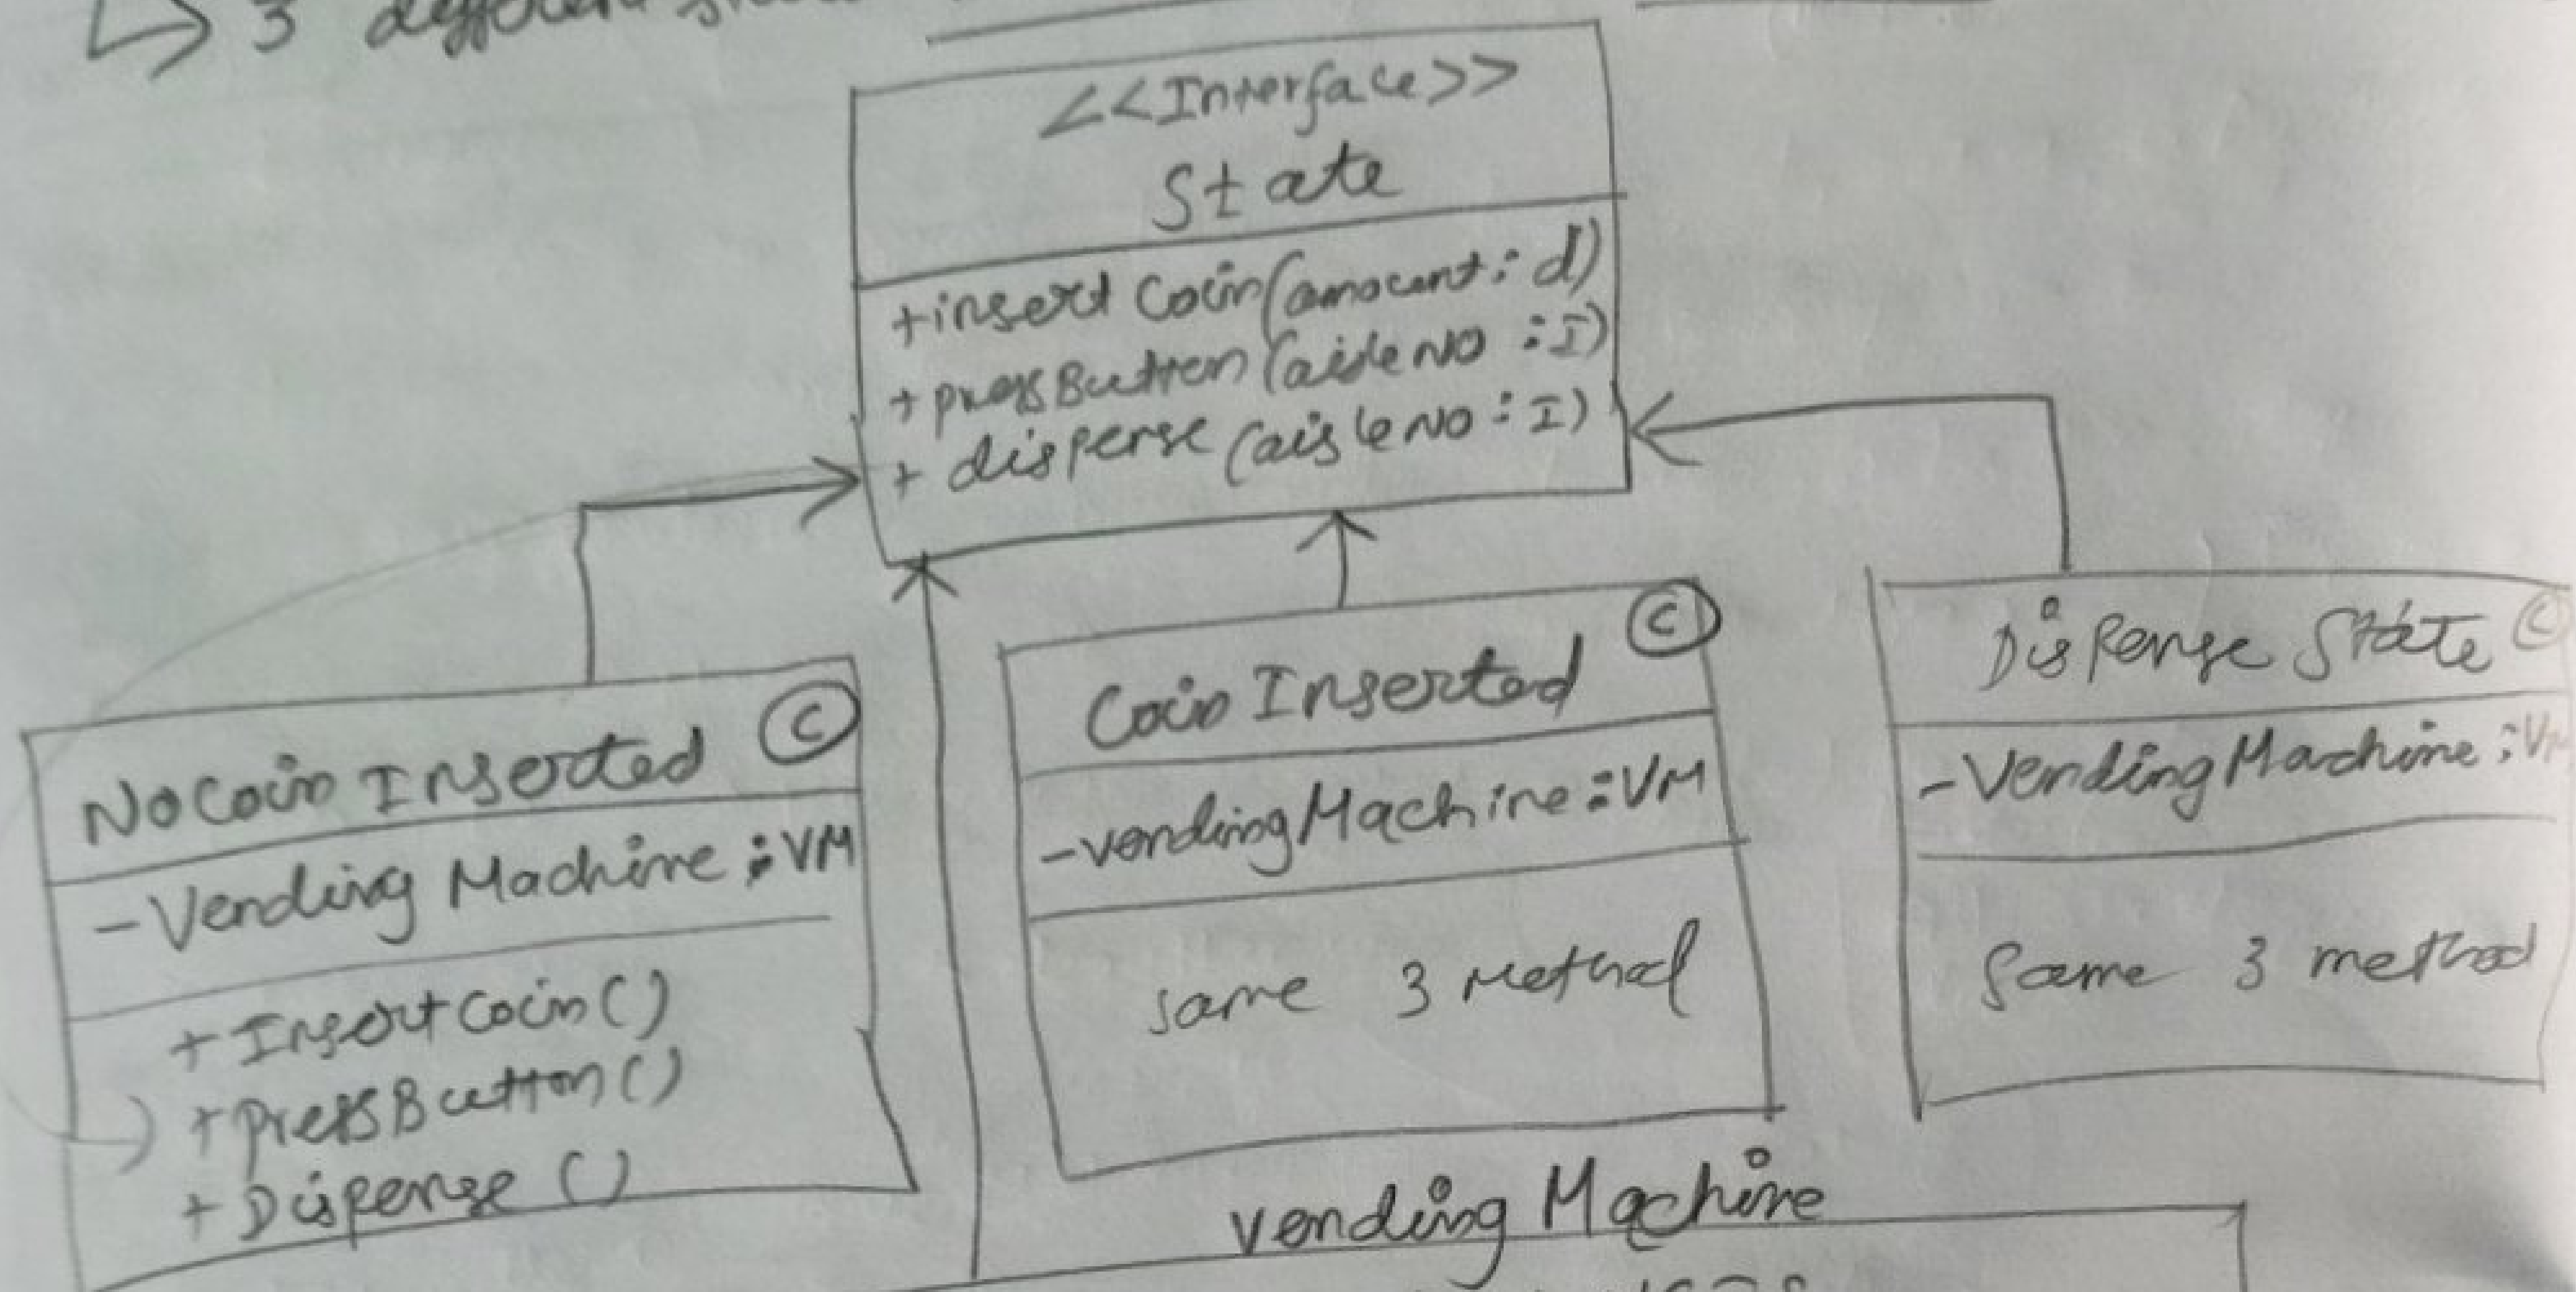 ↳ 3 different
<<Interface>>
State
+insert Coin(amount: d)
+ pressButton (aisle NO : I)
+ dispense (aisle NO : I)
No Coin Inserted
C
- Vending Machine : VM
+ Insert Coin ()
+ PressButton ()
+ Dispense ()
Coin Inserted
C
- vending Machine : VM
same 3 Method
Dispense State
C
- Vending Machine : VM
Same 3 method
vending Machine